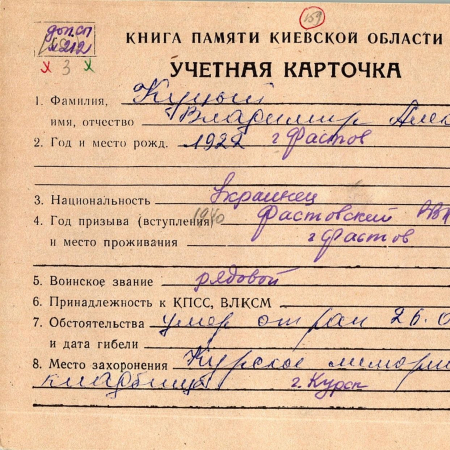 159
доп.сп
№212
3
КНИГА ПАМЯТИ КИЕВСКОЙ ОБЛАСТИ
УЧЕТНАЯ КАРТОЧКА
1. Фамилия, Куцый
имя, отчество Владимир Алек
2. Год и место рожд. 1922 г Фастов
3. Национальность Украинец
4. Год призыва (вступления) 1940 Фастовский РВК
и место проживания г Фастов
5. Воинское звание рядовой
6. Принадлежность к КПСС, ВЛКСМ
7. Обстоятельства умер от ран 26.0
и дата гибели
8. Место захоронения Курское мемори
кладбище г. Курск